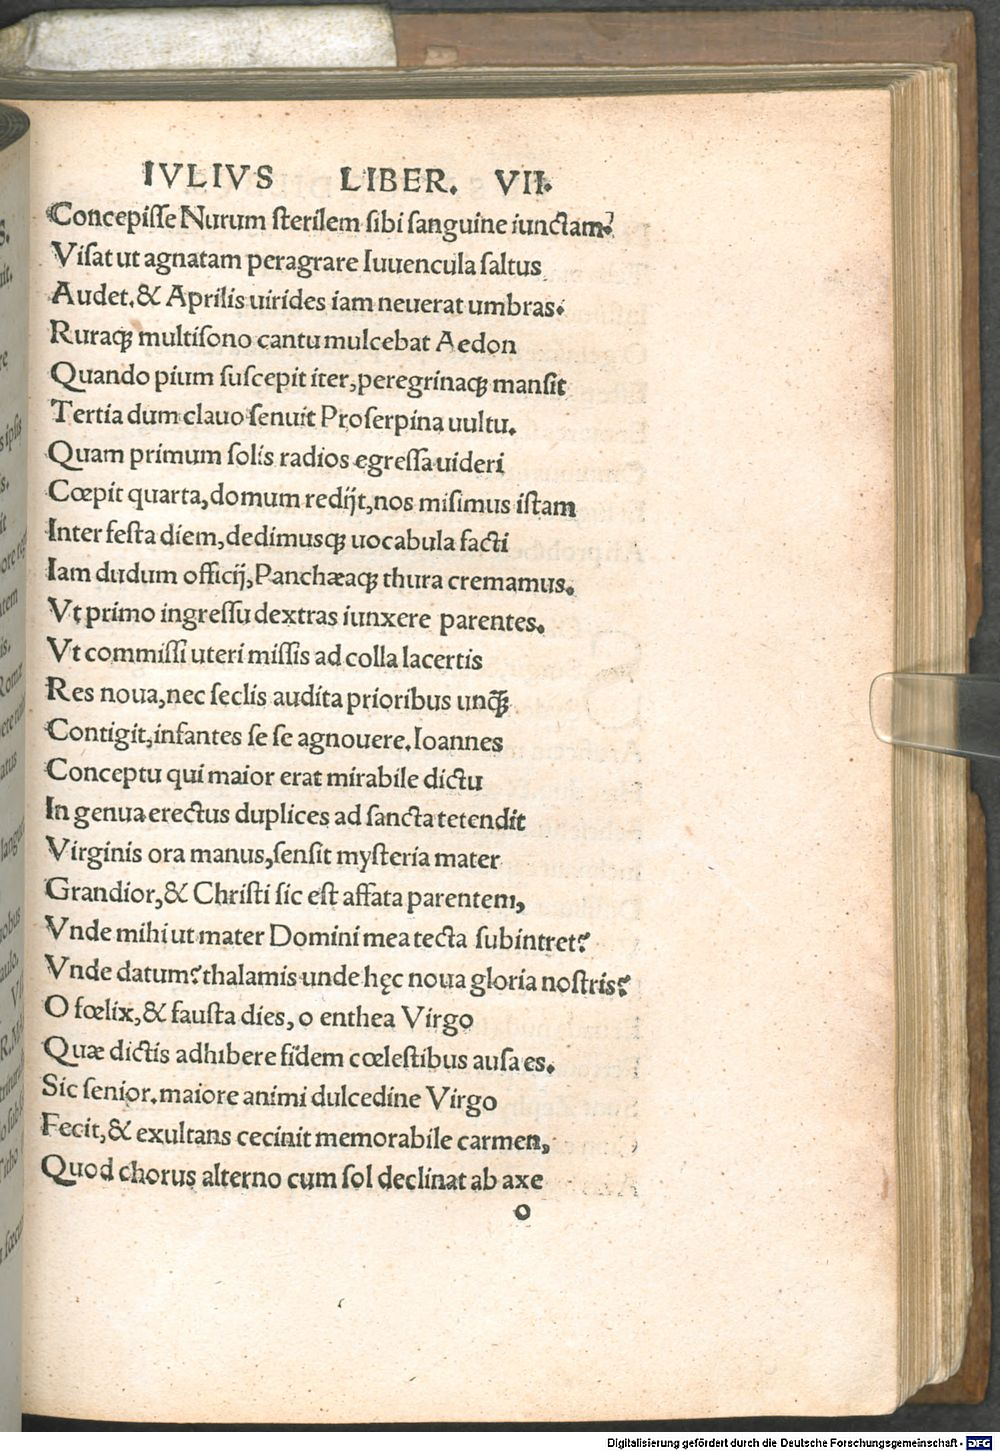 IVLIVS LIBER. VII.
Concepiſſe Nurum ſterilem ſibi ſanguine iunctam?
Viſat ut agnatam peragrare Iuuencula ſaltus
Audet. & Aprilis uirides iam neuerat umbras.
Ruraqꝫ multiſono cantu mulcebat Aedon
Quando pium ſuſcepit iter, peregrinaqꝫ manſit
Tertia dum clauo ſenuit Proſerpina uultu.
Quam primum ſolis radios egreſſa uideri
Cœpit quarta, domum redijt, nos miſimus iſtam
Inter feſta diem, dedimusqꝫ uocabula facti
Iam dudum officij, Panchæaqꝫ thura cremamus.
Vt primo ingreſſu dextras iunxere parentes.
Vt commiſſi uteri miſſis ad colla lacertis
Res noua, nec ſeclis audita prioribus unq̃ꝫ
Contigit, infantes ſe ſe agnouere. Ioannes
Conceptu qui maior erat mirabile dictu
In genua erectus duplices ad ſancta tetendit
Virginis ora manus, ſenſit myſteria mater
Grandior, & Chriſti ſic eſt affata parentem,
Vnde mihi ut mater Domini mea tecta ſubintret?
Vnde datum? thalamis unde hęc noua gloria noſtris?
O fœlix, & fauſta dies, o enthea Virgo
Quæ dictis adhibere fidem cœleſtibus auſa es.
Sic ſenior. maiore animi dulcedine Virgo
Fecit, & exultans cecinit memorabile carmen,
Quod chorus alterno cum ſol declinat ab axe
o
Digitalisierung gefördert durch die Deutsche Forschungsgemeinschaft - DFG